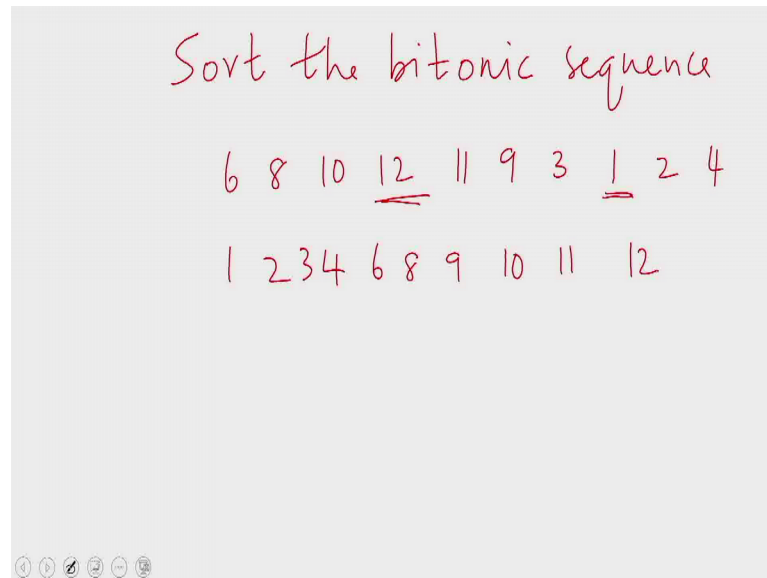 Sort the bitonic sequence
6 8 10 12 11 9 3 1 2 4
1 2 3 4 6 8 9 10 11 12